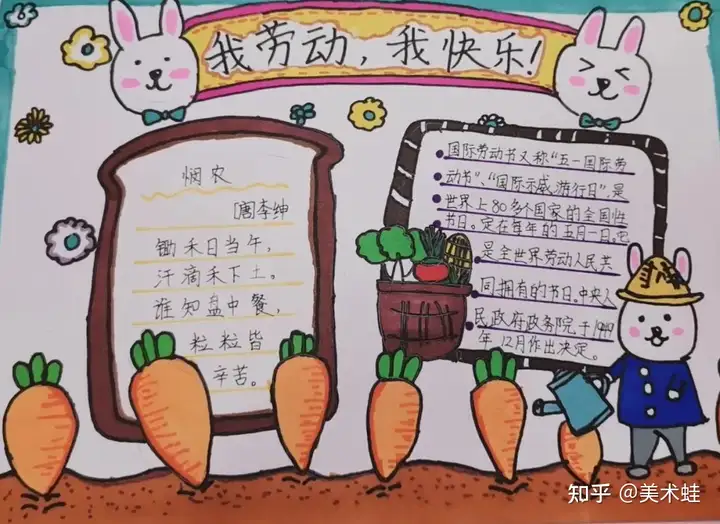 我劳动，我快乐！
悯农
[唐]李绅
锄禾日当午，
汗滴禾下土。
谁知盘中餐，
粒粒皆
辛苦。
国际劳动节又称“五一国际劳
动节”、“国际示威游行日”，是
世界上80多个国家的全国性
节日。定在每年的五月一日。它
是全世界劳动人民共
同拥有的节日。中央人
民政府政务院于1949
年12月作出决定。
知乎 @美术蛙